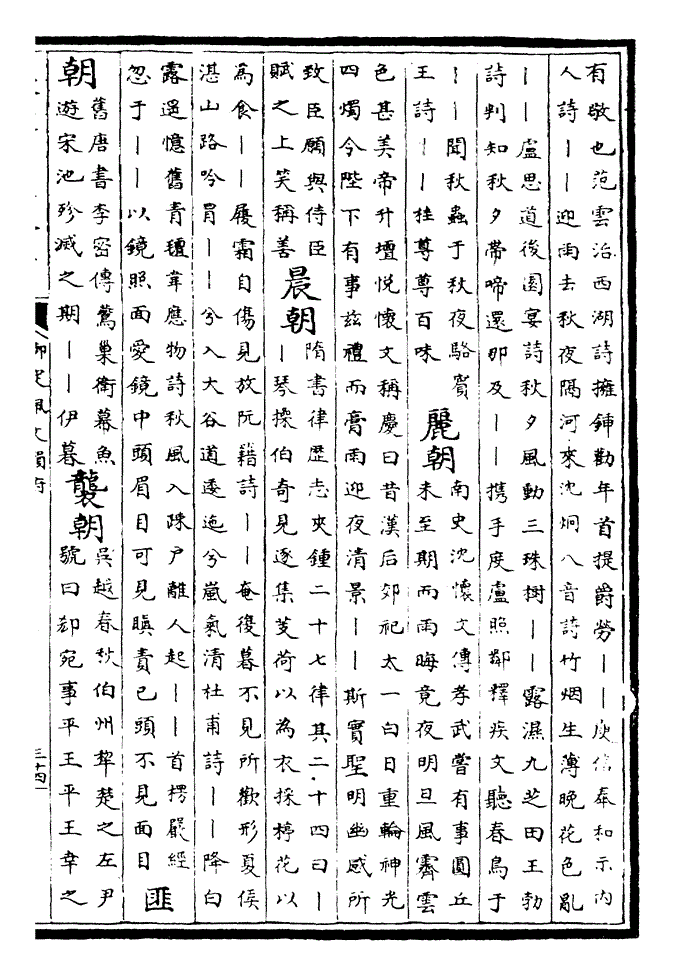 有敬也范雲治西湖詩擁鍤勸年首提爵勞丨丨庾信奉和示內
人詩丨丨迎雨去秋夜隔河來沈炯八音詩竹烟生薄晚花色亂
丨丨盧思道後園宴詩秋夕風動三珠樹丨丨露濕九芝田王勃
詩判知秋夕帶啼還那及丨丨攜手度盧照鄰釋疾文聽春鳥于
丨丨聞秋蟲于秋夜駱賓
王詩丨丨桂尊尊百味
麗朝
南史沈懷文傳孝武嘗有事圓丘
未至期而雨晦竟夜明旦風霽雲
色甚美帝升壇悅懷文稱慶曰昔漢后郊祀太一白日重輪神光
四燭今陛下有事兹禮而膏雨迎夜清景丨丨斯實聖明幽感所
致臣願與侍臣
賦之上笑稱善
晨朝
隋書律歷志夾鍾二十七律其二十四曰丨
丨琴操伯奇見逐集芰荷以為衣採楟花以
為食丨丨履霜自傷見放阮籍詩丨丨奄復暮不見所歡形夏侯
湛山路吟冒丨丨兮入大谷道逶迤兮嵐氣清杜甫詩丨丨降白
露遥憶舊青氊韋應物詩秋風入疎户離人起丨丨首楞嚴經
忽于丨丨以鏡照面愛鏡中頭眉目可見瞋責已頭不見面目
匪
朝
舊唐書李密傳鷰巢衛幕魚
遊宋池殄滅之期丨丨伊暮
襲朝
吳越春秋伯州犂楚之左尹
號曰郄宛事平王平王幸之
御定佩文韻府
三十四